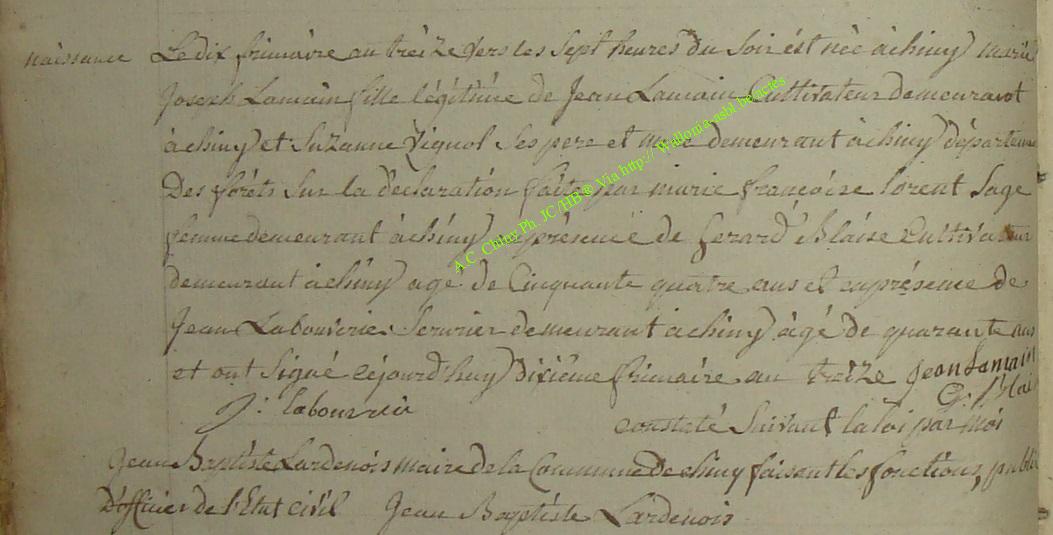 naissance Le dix frimaire an treize vers les sept heures du soir ést née à chiny marie
Joseph Lamain fille légitime de Jean Lamain Cultivateur demeurant
à chiny et Suzanne Vignol Ses pere et mere demeurant à chiny départeme
Des forêts Sur la déclaration faite par marie françoise lorent Sage
femme demeurant à chiny enprésence de Gerard Blaise Cultivateur
demeurant à chiny agé de Cinquante quatre ans et enprésence de
Jean Labouverie Serurier demeurant à chiny âgé de quarante ans
et ont Signé céjourd'huy dixiéme frimaire an treize Jean Lamain
J: labouverie G: Blai
constaté Suivant la loi par moi
Jean Baptiste Lardenois maire de la Commune de chiny faisant les fonctions publi
D'officier de l'Etat civil Jean Baptiste Lardenois
A.C. Chiny Ph. JC /HB © Via http:// Wallonia-asbl be/actes